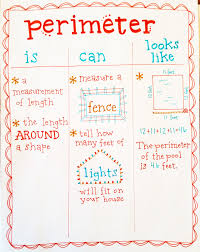 perimeter
is
can
looks
like
* a
measurement
of length
* the length
AROUND
a shape
* measure a
fence
* tell how
many feet of
lights
will fit on
your house
12+11+12+11=46
*The perimeter
of the pool
is 46 feet.